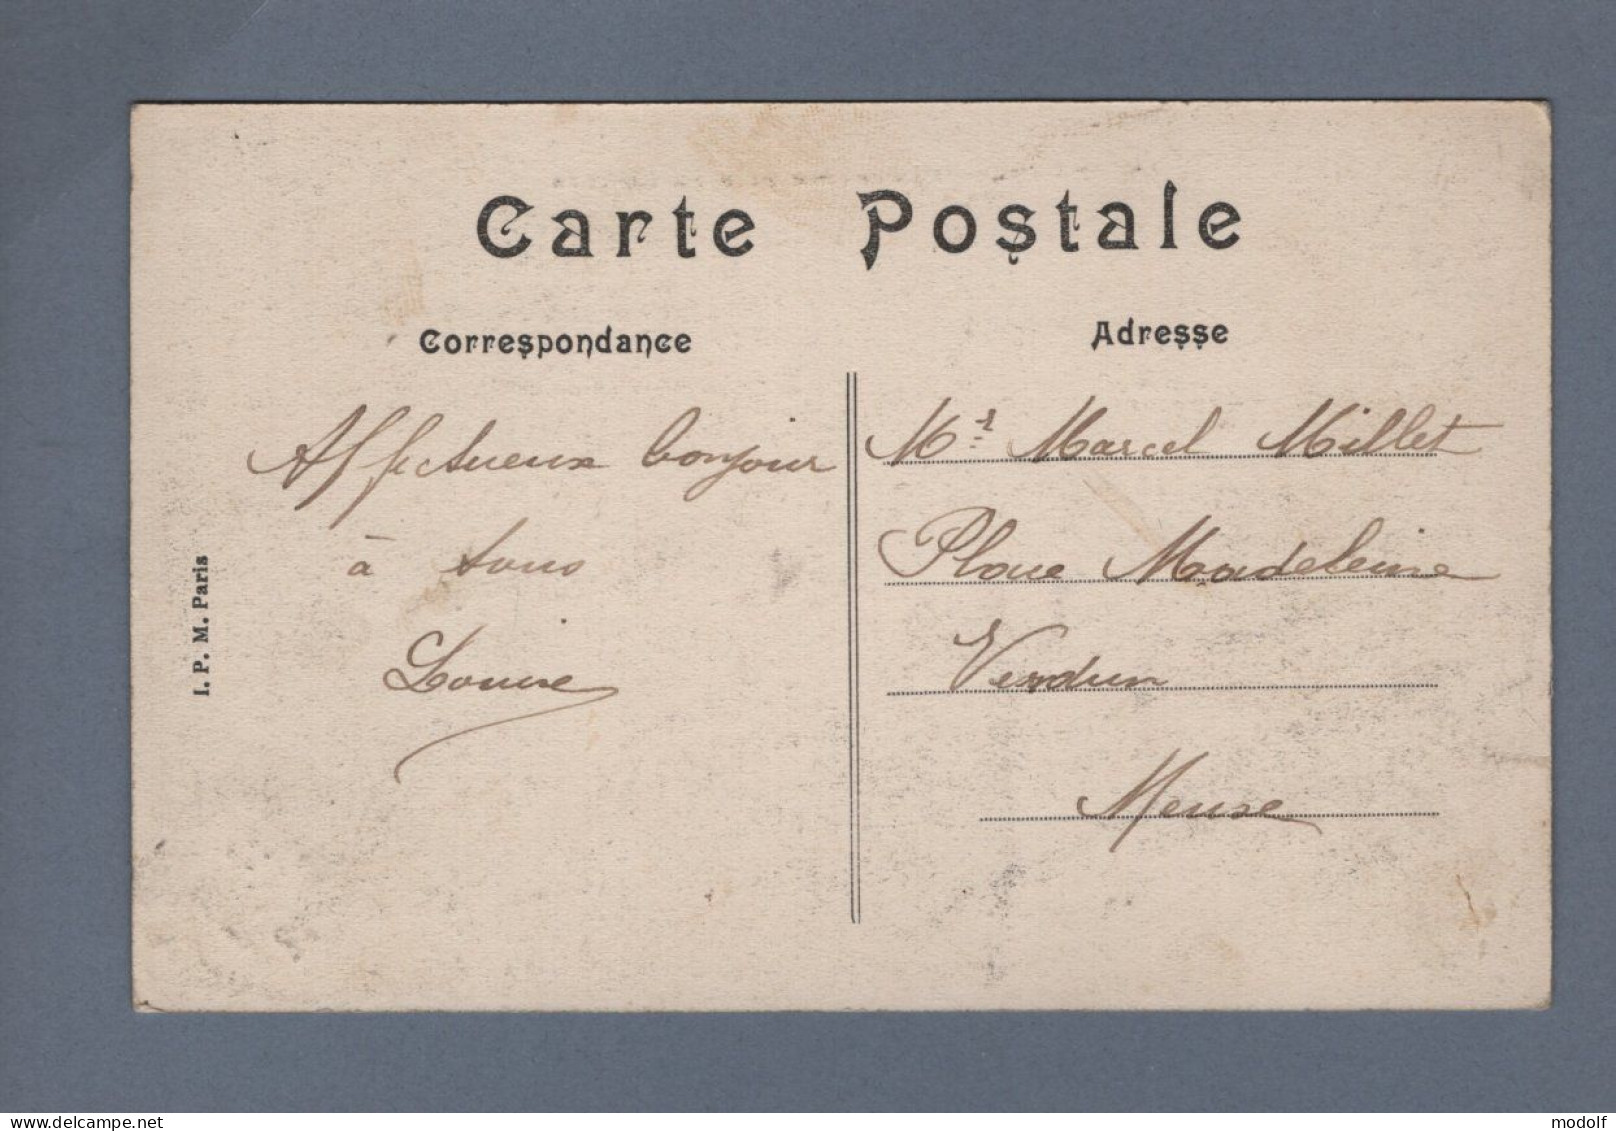 Carte Postale
Correspondance
Adresse
Affectueux bonjour
à tous
Louise
I. P. M. Paris
Mr Marcel Millet
Place Madeleine
Verdun
Meuse
modolf